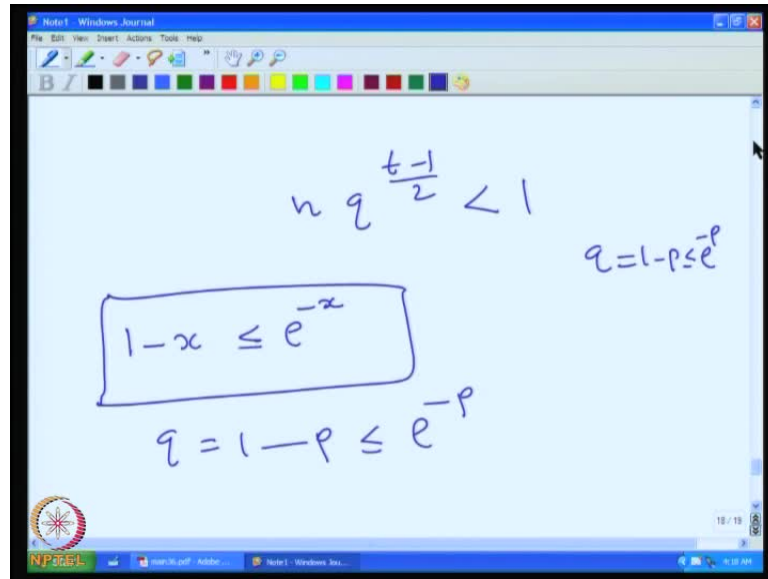 Note1 - Windows Journal
File Edit View Insert Actions Tools Help
B I
n q^{\frac{t-1}{2}} < 1
q = 1-p ≤ e^{-p}
1-x ≤ e^{-x}
q = 1-p ≤ e^{-p}
18 / 19
NPTEL
main36.pdf - Adobe ...
Note1 - Windows Jou...
4:18 AM